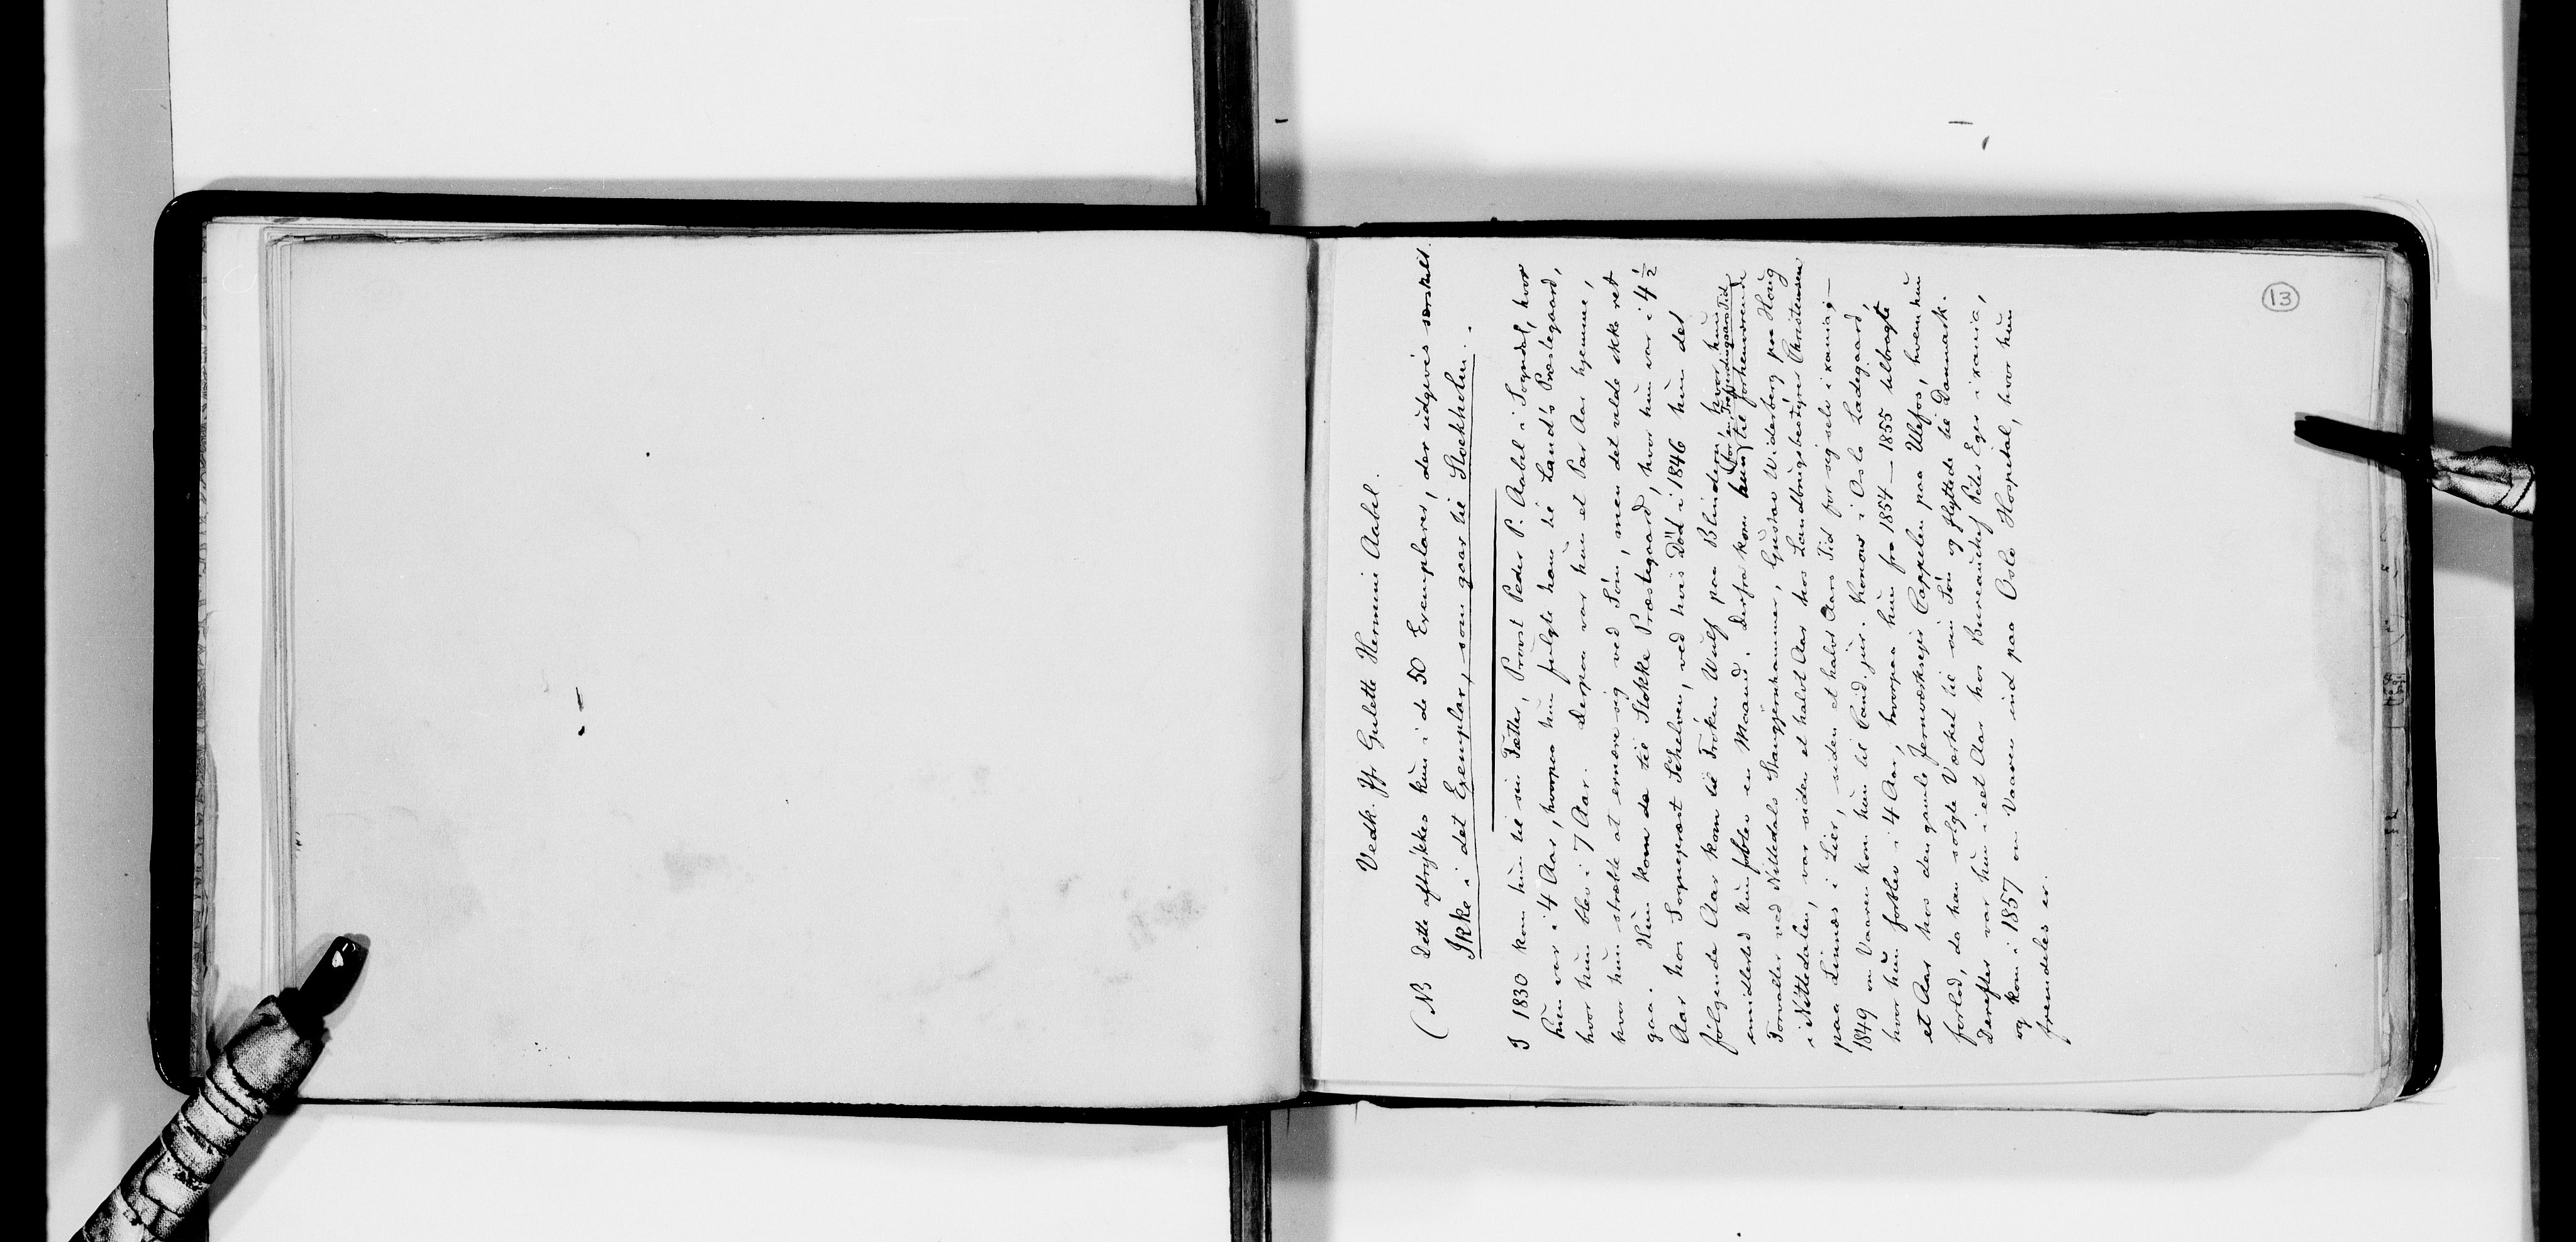 Vedk. Jfr Gulette Hermine Aabel.
(NB Dette aftrykkes kun i de 50 Exemplarer, der udgives særskilt.
Ikke i det Exemplar, som gaar til Stockholm.
I 1830 kom hun til sin Fætter, Provst Peder P. Aabel i Sogndal, hvor
hun var i 4 Aar, hvorpaa hun fulgte ham til Land's Præstegaard,
hvor hun blev i 7 Aar. Derpaa var hun et Par Aar hjemme,
hvor hun stræbte at ernære sig ved Søm, men det vilde ikke ret
gaa. Hun kom da til Stokke Præstegaard, hvor hun var i 4 1/2
Aar hos Sognepræst Schelven, ved hvis Død i 1846 hun det
følgende Aar kom til Frøken Wulf paa Blindern, hvor hun
imidlertid kun blev en Maaned. Derfra kom hun (for en Trefjerdingaars Tid) til forhenværende
Forvalter ved Nittedals Stangjernhammer, Gustav Widerberg paa Haug
i Nittedalen, var siden et halvt Aar hos Landbrugsbestyrer Christensen
paa Linnæs i Lier, siden et halvt Aars Tid for sig selv i xania;—
1849 om Vaaren kom hun til Cand. jur. Konow i Oslo Ladegaard,
hvor hun forblev i 4 Aar, hvorpaa hun fra 1854—1855 tilbragte
et Aar hos den gamle Jernværkseier Cappelen paa Ulefos, hvem hun
forlod, da han solgte Værket til sin Søn og flyttede til Danmark.
Derefter var hun i eet Aar hos Bureauchef Peter Eger i xania,
og kom i 1857 om Vaaren ind paa Oslo Hospital, hvor hun
fremdeles er.
13